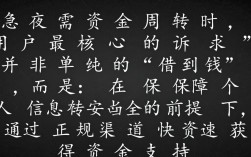 急夜需资金周转时，
用户最核心的诉求”
并非单纯的“借到钱”
，而是：在保保障个
人信息转安当全的前提下
通过正规渠道快资速获
得资金支持